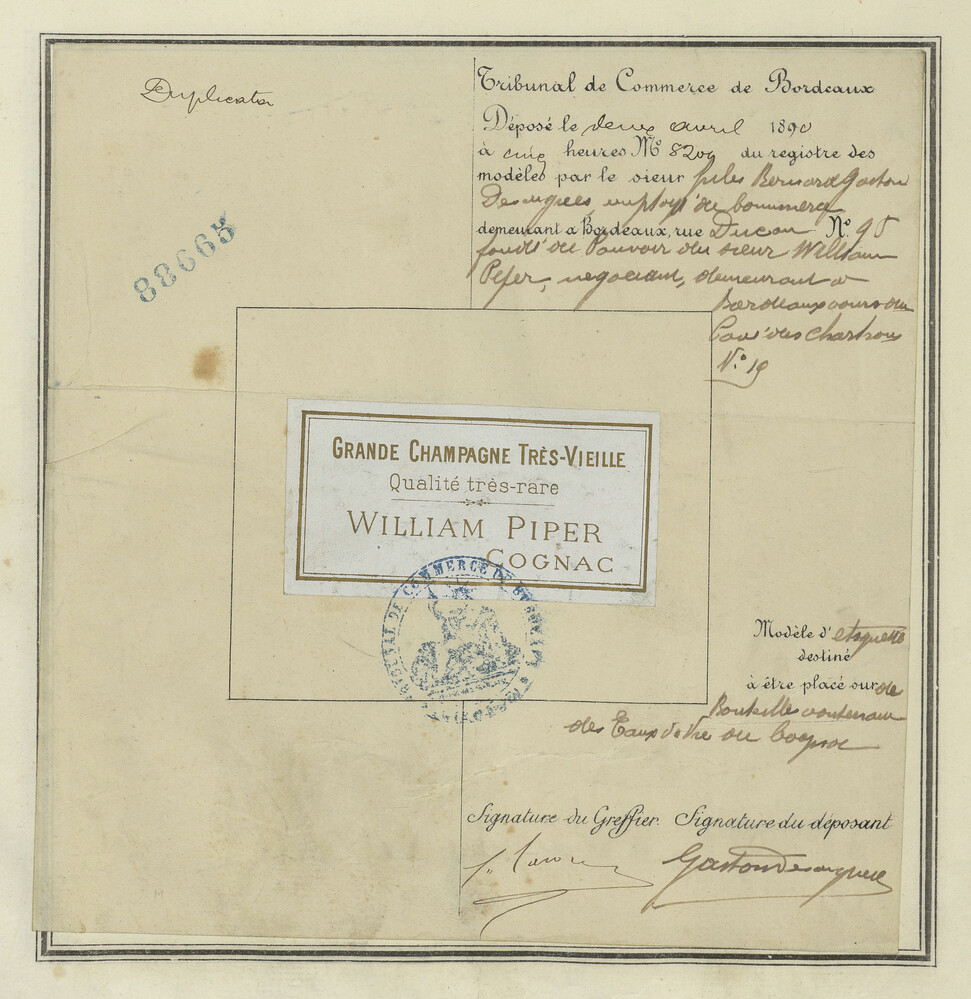 Duplicata
88665
Tribunal de Commerce de Bordeaux
Déposé le deux avril 1890
à cinq heures No 8209 du registre des
modèles par le sieur Jules Bernard Gaston
employé de commerce
demeurant a Bordeaux, rue Ducau No. 95
fondé de Pouvoir du sieur William
Piper, negociant, demeurant à
Bordeaux cours du
Pavé des Chartrons
No. 19
GRANDE CHAMPAGNE TRÈS-VIEILLE
Qualité très-rare
WILLIAM PIPER
COGNAC
TRIBUNAL DE COMMERCE DE BORDEAUX
Modèle d'etiquette
destiné
à être placé sur des
Bouteilles contenant
des Eaux de Vie de Cognac
Signature du Greffier. Signature du déposant
Gaston